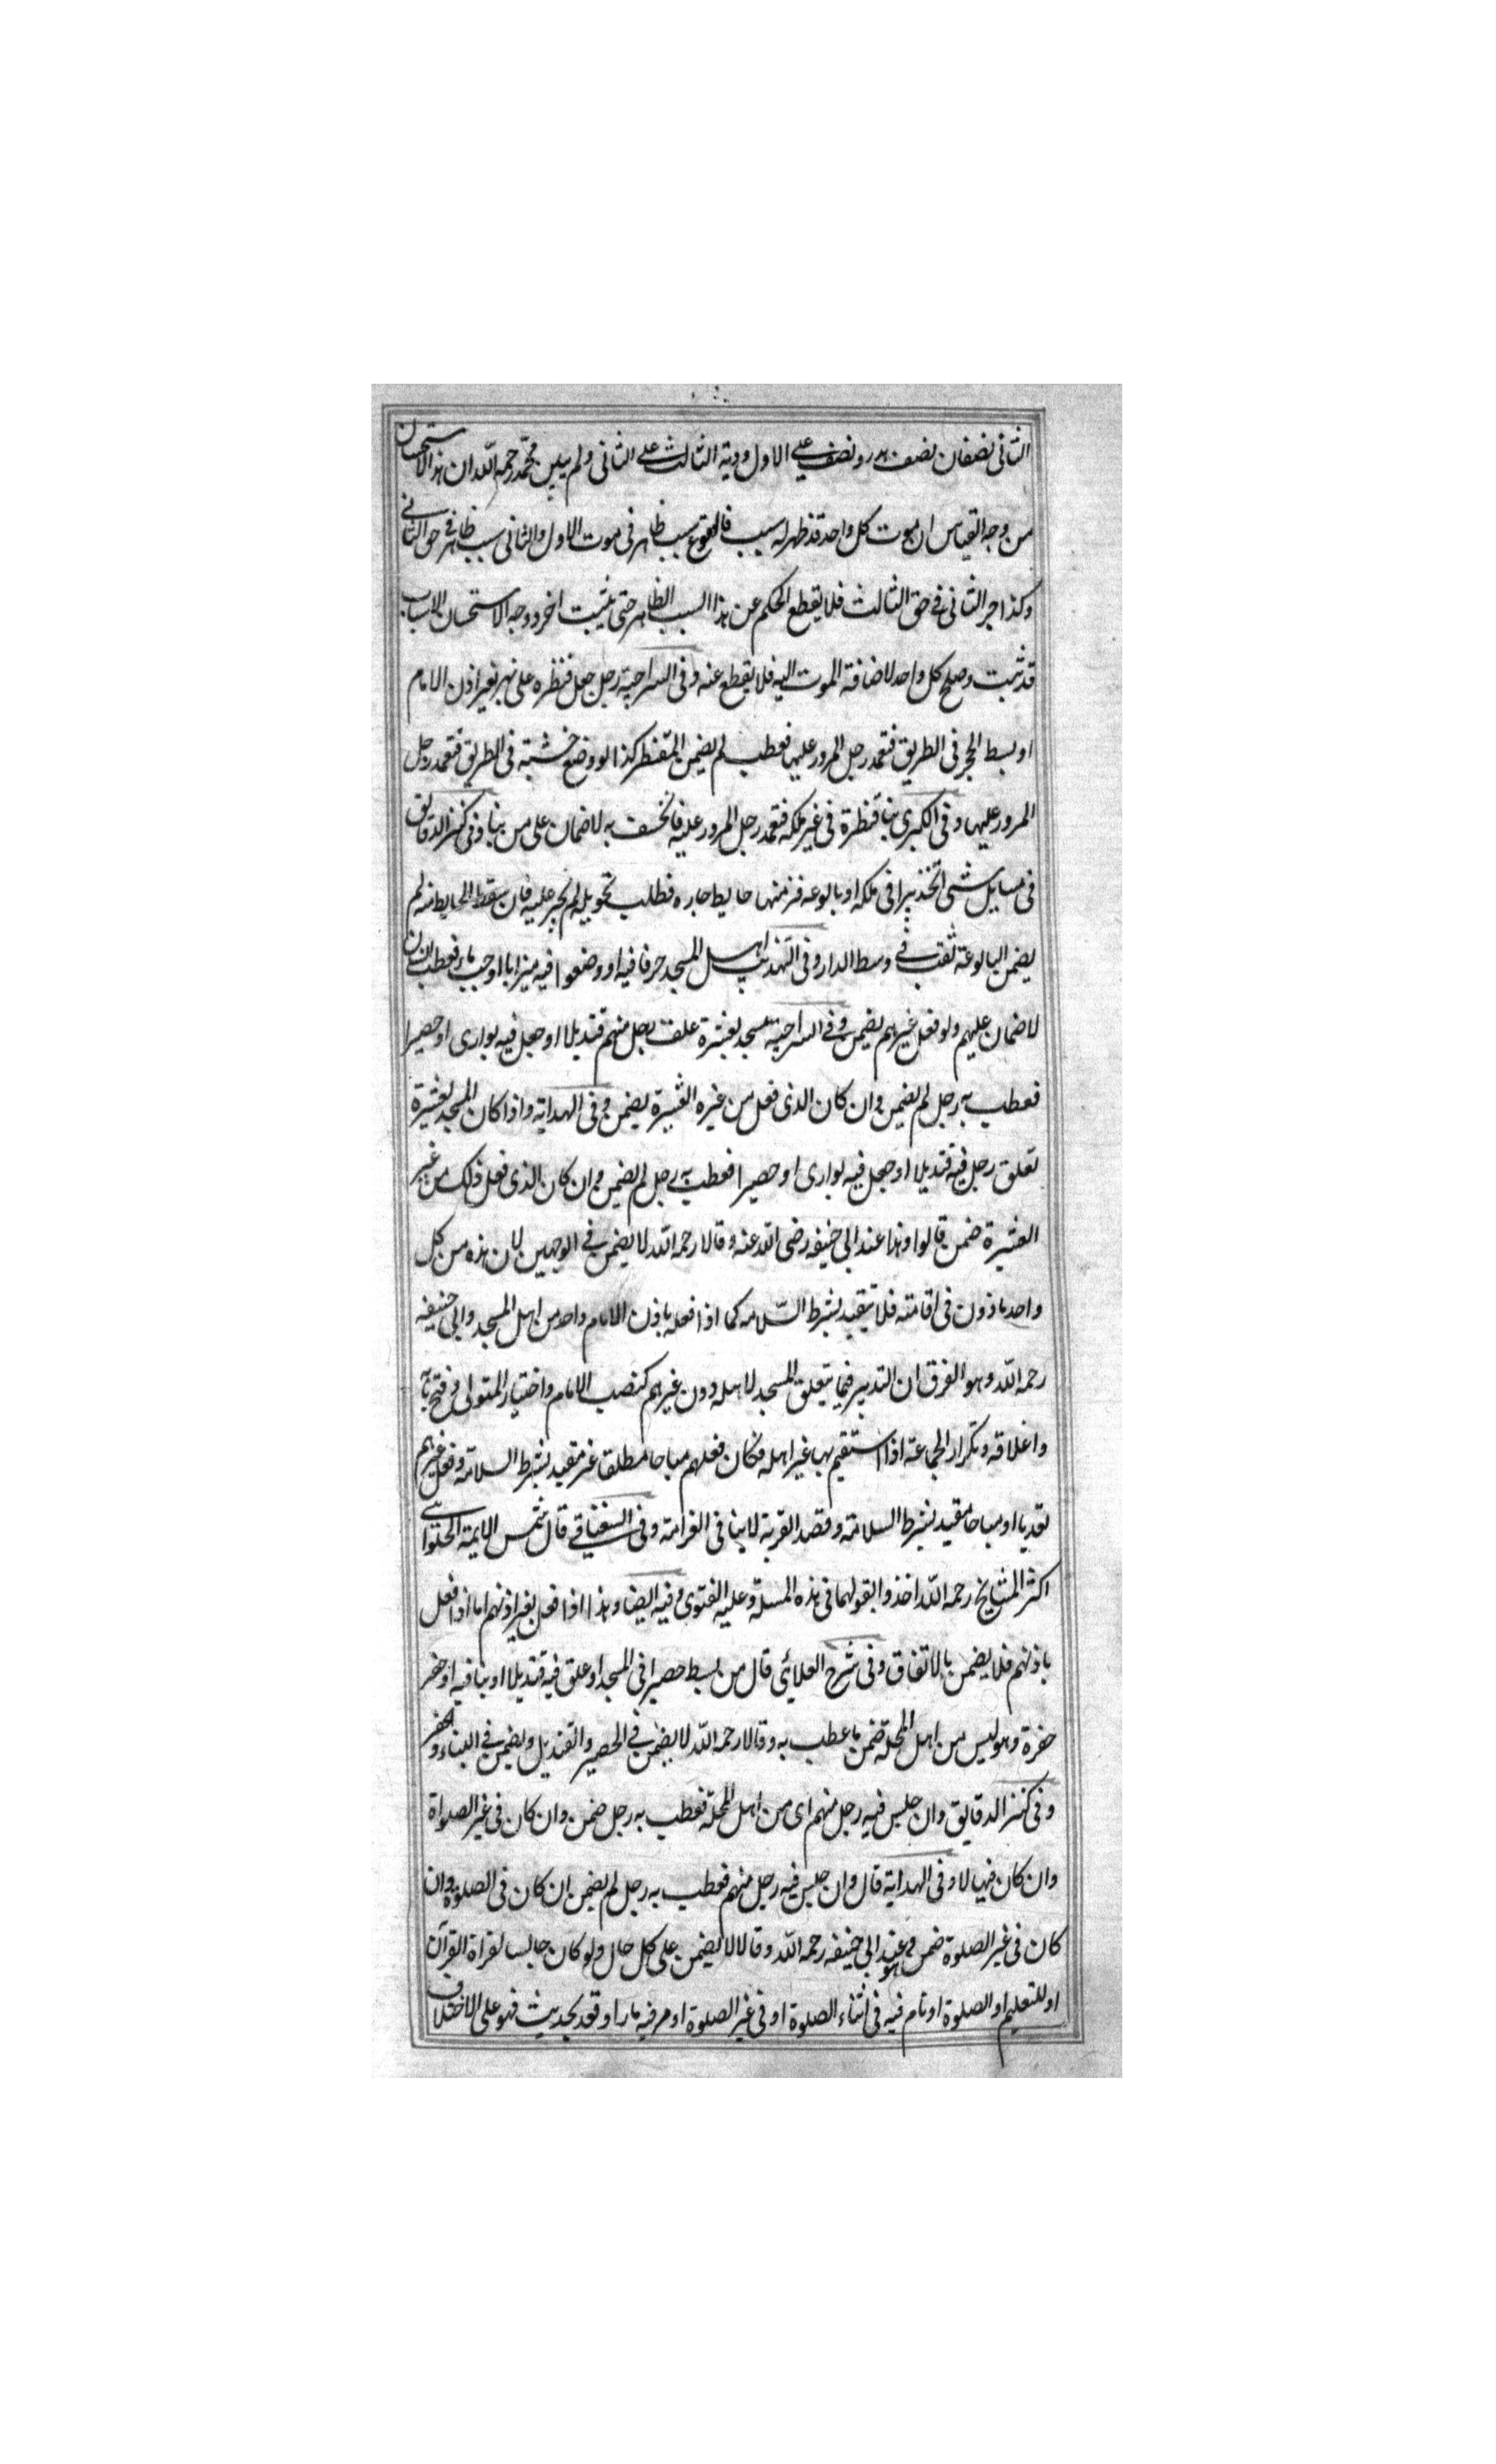 الثانى نصفان نصف هدر ونصف على الاول ودية الثالث على الثانى ولم يبين محمد رحمه الله ان هذا الاستحسان
من وجه القياس ان موت كل واحد قد ظهر له سبب فالوقوع سبب ظاهر فى موت الاول والثانى سبب ظاهر فى حق الثانى
وكذا جر الثانى فى حق الثالث فلا يقطع الحكم عن هذا السبب الظاهر حتى يثبت اخر ووجه الاستحسان الاسباب
قد ثبت وصلح كل واحد لاضافة الموت اليه فلا يقطع عنه وفى السراجية رجل جعل قنطره على نهر بغير اذن الامام
او بسط الحجر فى الطريق فتعمد رجل المرور عليها فعطب لم يضمن المتقنطر كذا لو وضع خشبته فى الطريق فتعمد رجل
المرور عليها وفى الكبرى بنا قنطرة فى غير ملكه فتعمد رجل المرور عليه فانخسف به لا ضمان على من بنا وفى كنز الدقايق
فى مسايل شتى اتخذ بيرا فى ملكه او بالوعه فنز منها حايط جاره فطلب تحويله لم يجبر عليه فان سقط الحايط منه لم
يضمن البالوعة ثقب فى وسط الدار وفى التهذيب اهل المسجد حرفا فيه او وضعوا فيه ميزابا او جب ماء فعطب انسان
لا ضمان عليهم ولو فعل غيرهم يضمن وفى السراجية مسجد لعشيرة علق رجل منهم قنديلا او جعل فيه بوارى او حصيرا
فعطب به رجل لم يضمن وان كان الذى فعل من غيره العشيرة يضمن وفى الهداية واذا كان المسجد لعشيرة
تعلق رجل فيه قنديلا او جعل فيه بوارى او حصيرا فعطب به رجل لم يضمن وان كان الذى فعل ذلك من غير
العشيرة ضمن قالوا وهذا عند ابى حنيفه رضى الله عنه وقالا رحمه الله لا يضمن فى الوجهين لان هذه من كل
واحد ماذون فى اقامته فلا يتقيد بشرط السلامه كما اذا فعله باذن الامام واحد من اهل المسجد وابى حنيفه
رحمه الله وهو الفرق ان التدبير فيما يتعلق المسجد لاهله دون غيرهم كنصب الامام واختيار المتولى وفتح بابه
واغلاقه وتكرار الجماعة اذا استقيم بها غير اهله فكان فعلهم مباحا مطلقا غير مقيد بشرط السلامة وفعل غيرهم
تعديا او مباحا مقيد بشرط السلامة وقصد القربة لا ينافى الغرامة وفى السغناقى قال شمس الايمة الحلوانى
اكثر المشايخ رحمه الله اخذوا بقولهما فى هذه المسلة وعليه الفتوى وفيه ايضا وهذا اذا فعل بغير اذنهم اما اذا فعل
باذنهم فلا يضمن بالاتفاق وفى شرح العلائى قال من بسط حصيرا فى المسجد او علق فيه قنديلا او بنا فيه او حفر
حفرة وهو ليس من اهل المحلة ضمن ما عطب به وقالا رحمه الله لا يضمن فى الحصير والقنديل ويضمن فى البناء والحفر
وفى كنز الدقايق وان جلس فيه رجل منهم اى من اهل المحلة فعطب به رجل ضمن وان كان فى غير الصلواة
وان كان فيها لا وفى الهداية قال وان جلس فيه رجل منهم فعطب به رجل لم يضمن ان كان فى الصلوة وان
كان فى غير الصلوة ضمن وهو عند ابى حنيفه رحمه الله وقالا لا يضمن على كل حال ولو كان جالسا لقراة القرآن
او للتعليم او الصلوة او نام فيه فى اثناء الصلوة او فى غير الصلوة او مر فيه مارا وقعد لحديث فهو على الاختلاف